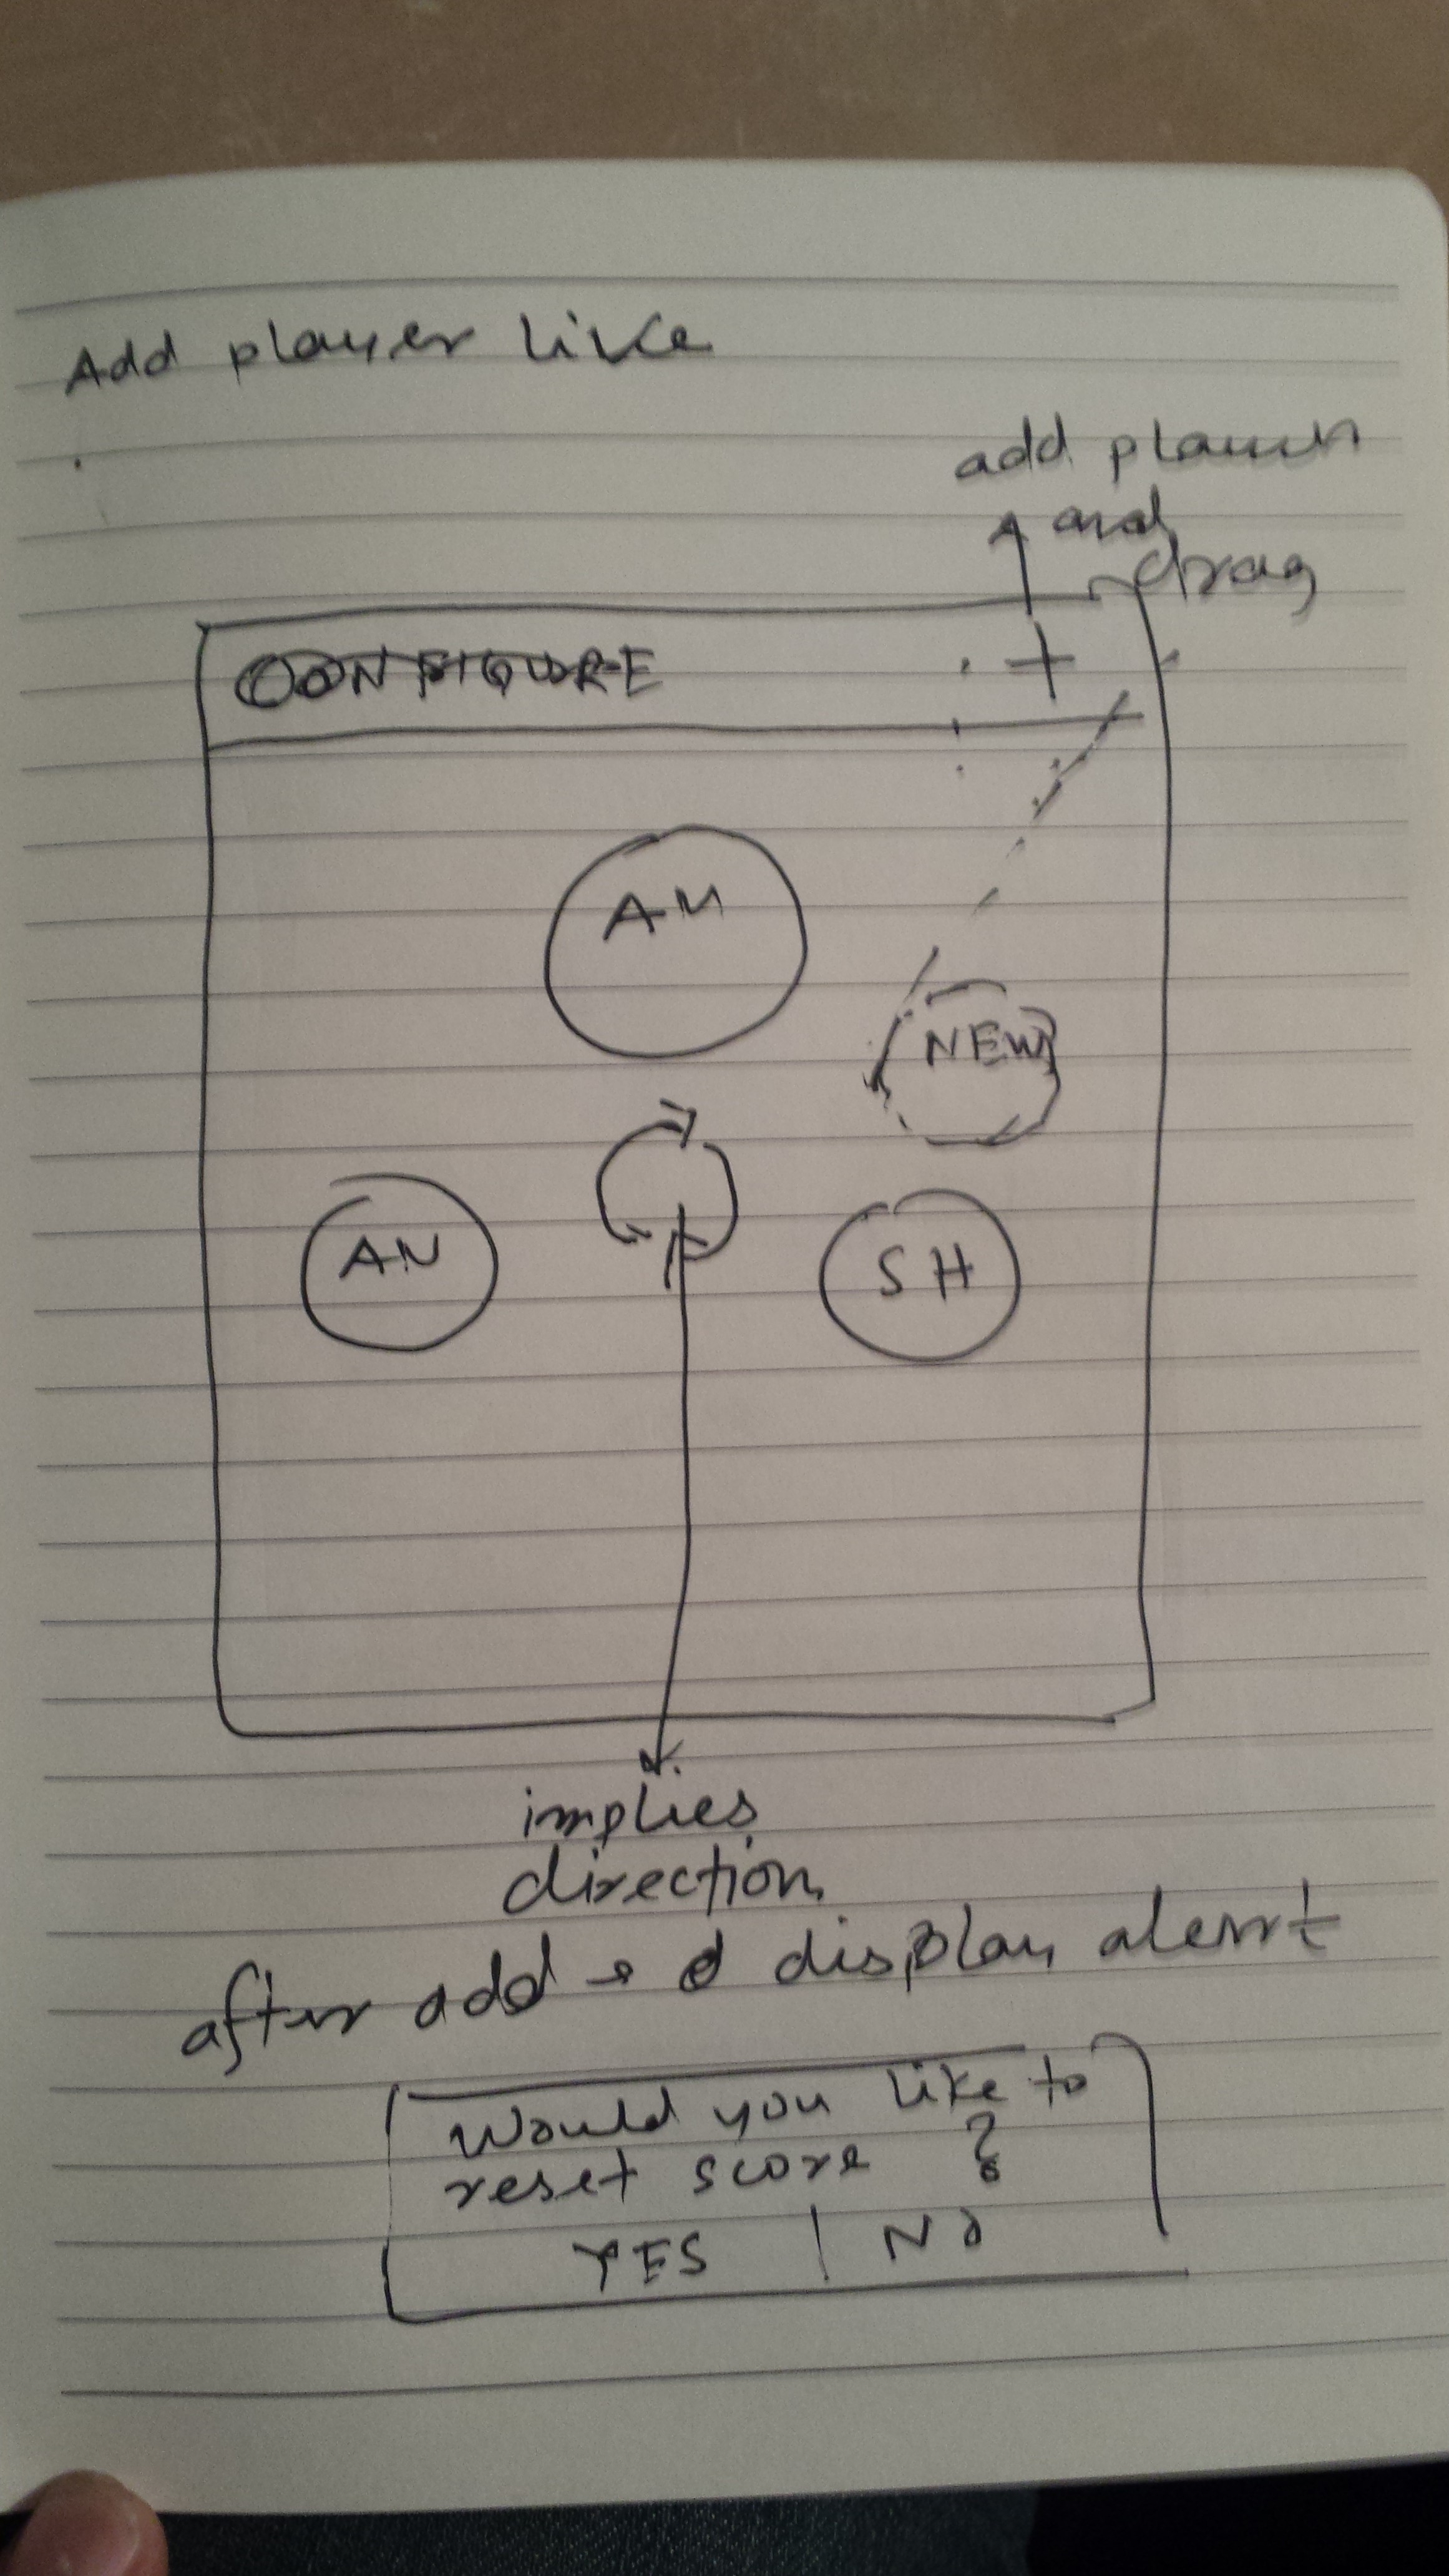 Add player like
add player
and
drag
CONFIGURE
+
AM
NEW
AN
SH
implies
direction
after add → display alert
Would you like to
reset score ?
YES | NO